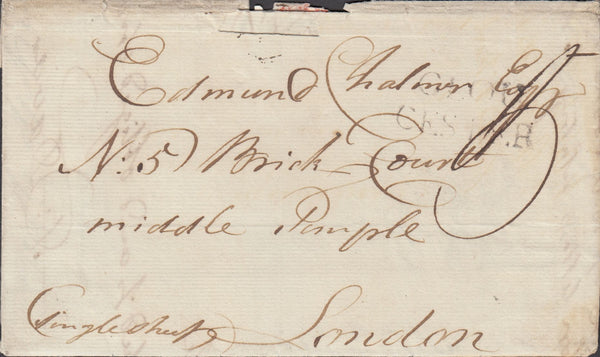 Edmund Chalmer Esqr
GLOU
CESTER
No: 5 Brick Court
middle Temple
Single Sheet
London